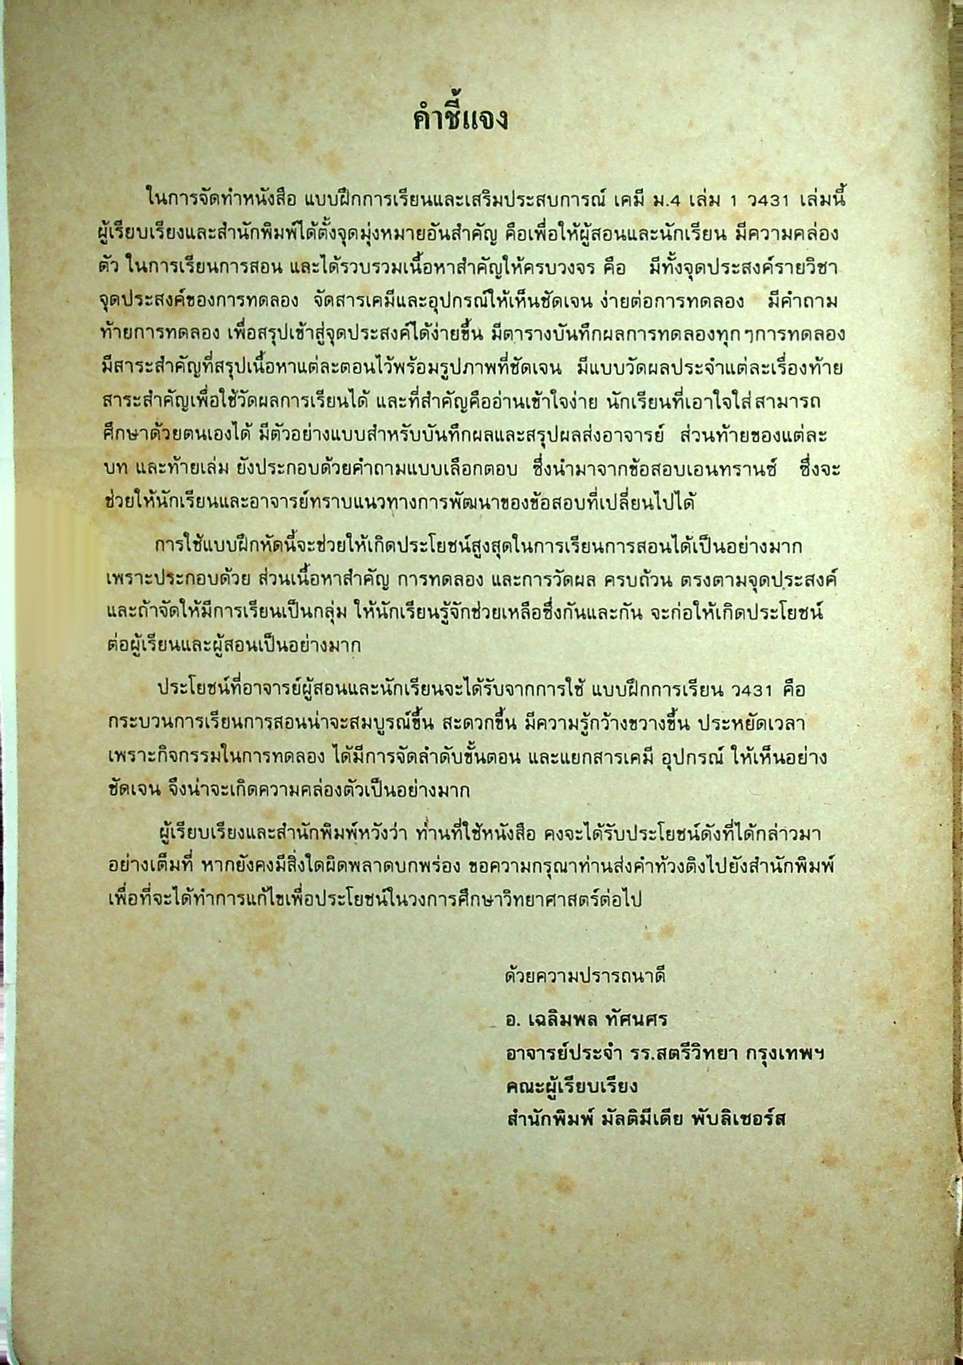 คำชี้แจง
ในการจัดทำหนังสือ แบบฝึกการเรียนและเสริมประสบการณ์ เคมี ม.4 เล่ม 1 ว431 เล่มนี้
ผู้เรียบเรียงและสำนักพิมพ์ได้ตั้งจุดมุ่งหมายอันสำคัญ คือเพื่อให้ผู้สอนและนักเรียน มีความคล่อง
ตัว ในการเรียนการสอน และได้รวบรวมเนื้อหาสำคัญให้ครบวงจร คือ มีทั้งจุดประสงค์รายวิชา
จุดประสงค์ของการทดลอง จัดสารเคมีและอุปกรณ์ให้เห็นชัดเจน ง่ายต่อการทดลอง มีคำถาม
ท้ายการทดลอง เพื่อสรุปเข้าสู่จุดประสงค์ได้ง่ายขึ้น มีตารางบันทึกผลการทดลองทุกๆการทดลอง
มีสาระสำคัญที่สรุปเนื้อหาแต่ละตอนไว้พร้อมรูปภาพที่ชัดเจน มีแบบวัดผลประจำแต่ละเรื่องท้าย
สาระสำคัญเพื่อใช้วัดผลการเรียนได้ และที่สำคัญคืออ่านเข้าใจง่าย นักเรียนที่เอาใจใส่สามารถ
ศึกษาด้วยตนเองได้ มีตัวอย่างแบบสำหรับบันทึกผลและสรุปผลส่งอาจารย์ ส่วนท้ายของแต่ละ
บท และท้ายเล่ม ยังประกอบด้วยคำถามแบบเลือกตอบ ซึ่งนำมาจากข้อสอบเอนทรานซ์ ซึ่งจะ
ช่วยให้นักเรียนและอาจารย์ทราบแนวทางการพัฒนาของข้อสอบที่เปลี่ยนไปได้
การใช้แบบฝึกหัดนี้จะช่วยให้เกิดประโยชน์สูงสุดในการเรียนการสอนได้เป็นอย่างมาก
เพราะประกอบด้วย ส่วนเนื้อหาสำคัญ การทดลอง และการวัดผล ครบถ้วน ตรงตามจุดประสงค์
และถ้าจัดให้มีการเรียนเป็นกลุ่ม ให้นักเรียนรู้จักช่วยเหลือซึ่งกันและกัน จะก่อให้เกิดประโยชน์
ต่อผู้เรียนและผู้สอนเป็นอย่างมาก
ประโยชน์ที่อาจารย์ผู้สอนและนักเรียนจะได้รับจากการใช้ แบบฝึกการเรียน ว431 คือ
กระบวนการเรียนการสอนน่าจะสมบูรณ์ขึ้น สะดวกขึ้น มีความรู้กว้างขวางขึ้น ประหยัดเวลา
เพราะกิจกรรมในการทดลอง ได้มีการจัดลำดับขั้นตอน และแยกสารเคมี อุปกรณ์ ให้เห็นอย่าง
ชัดเจน จึงน่าจะเกิดความคล่องตัวเป็นอย่างมาก
ผู้เรียบเรียงและสำนักพิมพ์หวังว่า ท่านที่ใช้หนังสือ คงจะได้รับประโยชน์ดังที่ได้กล่าวมา
อย่างเต็มที่ หากยังคงมีสิ่งใดผิดพลาดบกพร่อง ขอความกรุณาท่านส่งคำท้วงติงไปยังสำนักพิมพ์
เพื่อที่จะได้ทำการแก้ไขเพื่อประโยชน์ในวงการศึกษาวิทยาศาสตร์ต่อไป
ด้วยความปรารถนาดี
อ. เฉลิมพล ทัศนศร
อาจารย์ประจำ รร.สตรีวิทยา กรุงเทพฯ
คณะผู้เรียบเรียง
สำนักพิมพ์ มัลติมีเดีย พับลิเชอร์ส